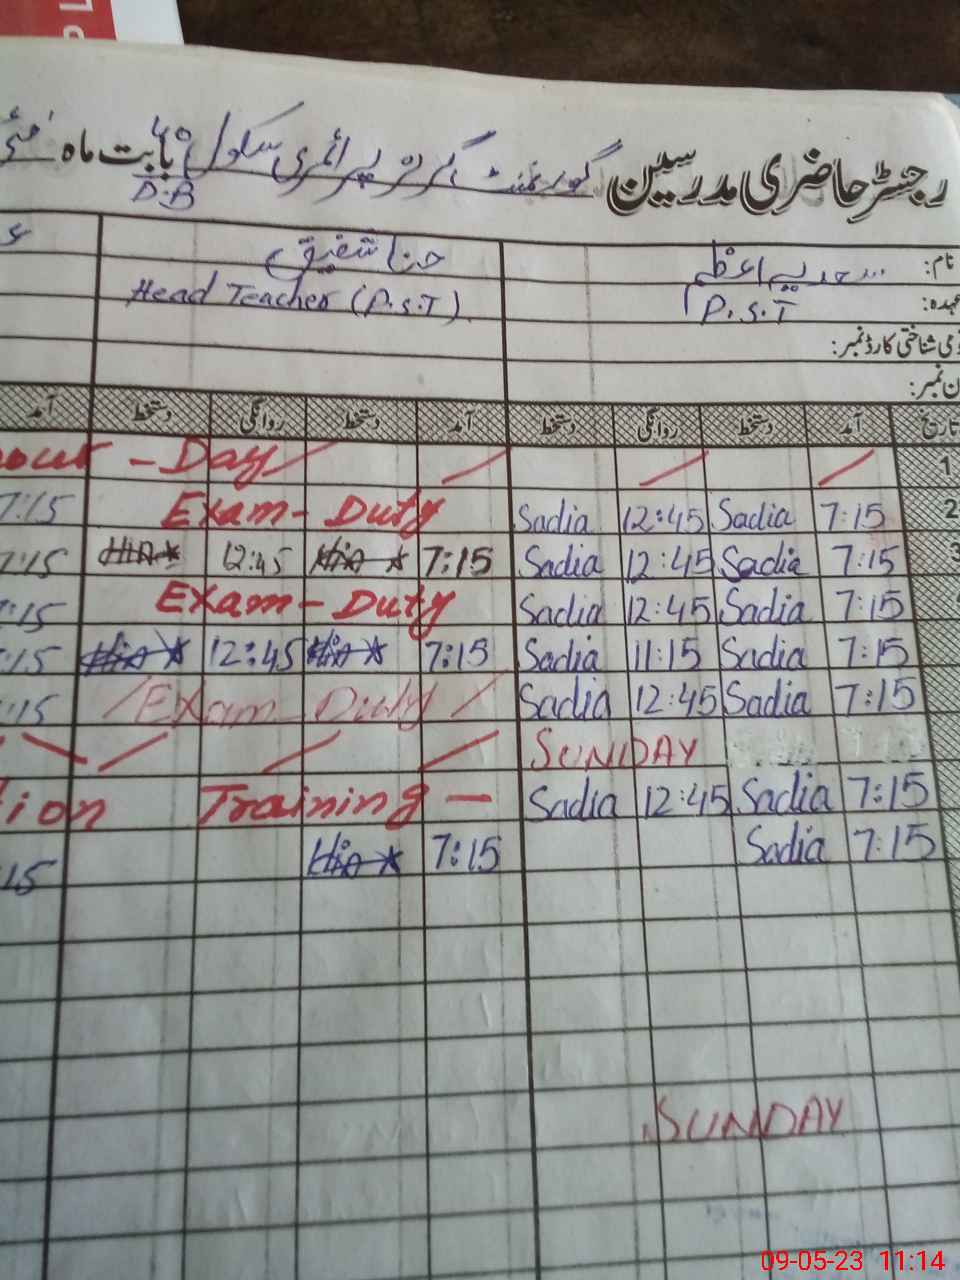 رجسٹر حاضری مدرسین گورنمنٹ گرلز پرائمری سکول 40 بابت ماہ مئی
D.B
نام: سعدیہ اعظم حنا شفیق
عہدہ: P.S.T Head Teacher (P.S.T)
قومی شناختی کارڈ نمبر:
ن نمبر:
تاریخ آمد دستخط روانگی دستخط آمد دستخط روانگی دستخط آمد
1 - Day
2 7:15 Sadia 12:45 Sadia Exam - Duty 7:15
3 7:15 Sadia 12:45 Sadia 7:15 12:45 7:15
7:15 Sadia 12:45 Sadia Exam - Duty :15
7:15 Sadia 11:15 Sadia 7:15 12:45 :15
7:15 Sadia 12:45 Sadia Exam Duty :15
SUNDAY
7:15 Sadia 12:45 Sadia Training - tion
7:15 Sadia 7:15 15
SUNDAY
09-05-23 11:14